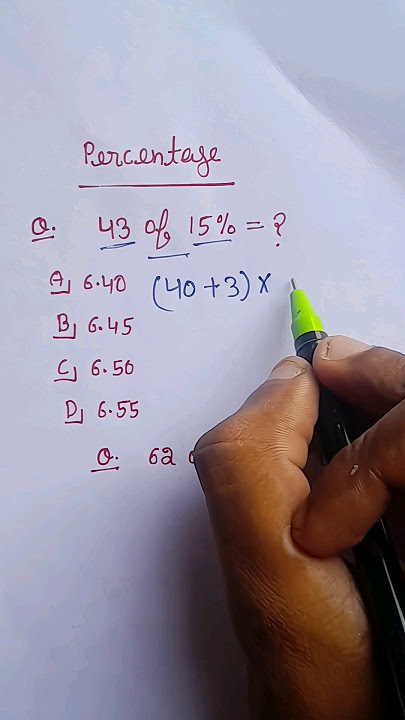 Percentage
Q. 43 of 15% = ?
A) 6.40 (40+3)×
B) 6.45
C) 6.50
D) 6.55
Q. 62